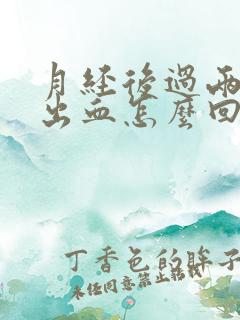 月經後過兩
出血怎麼回
丁香色的眸子
未经同意禁止转载